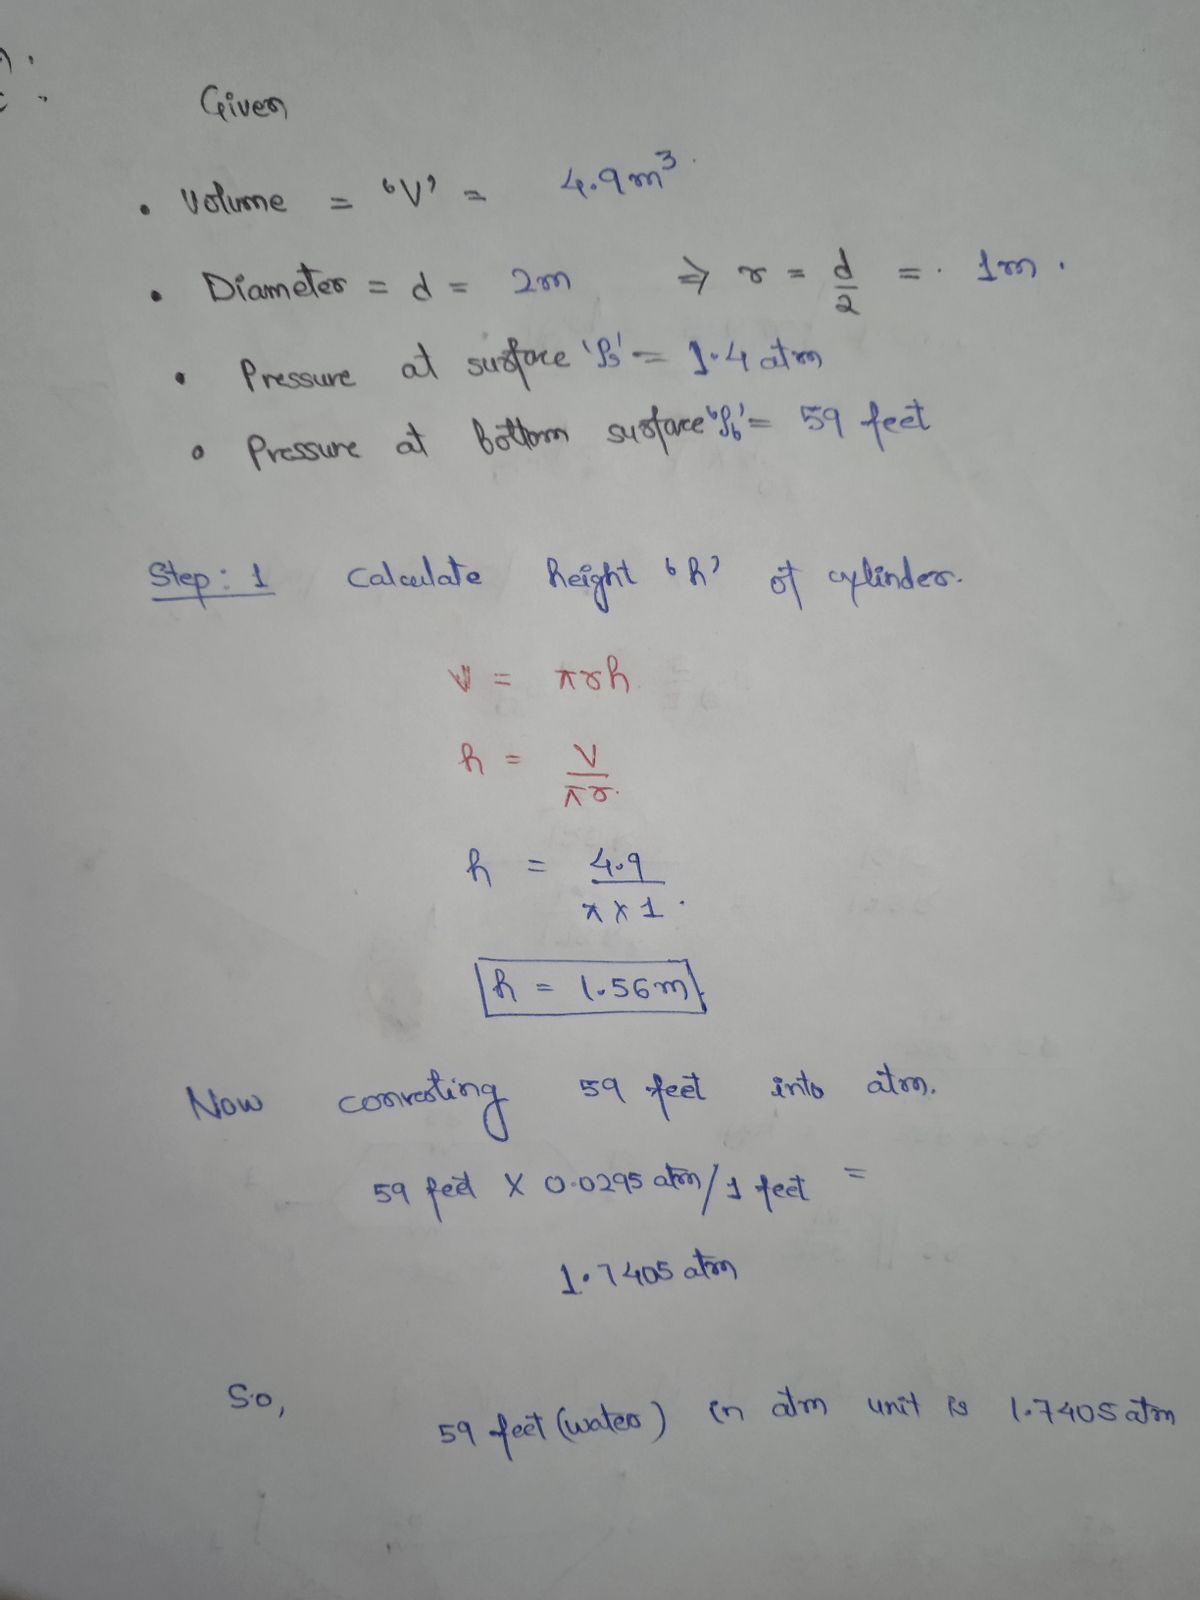 Given
• Volume = 'V' = 4.9m³.
• Diameter = d = 2m ⇒ r = d/2 = . 1m .
• Pressure at surface 'Ps' = 1.4 atm
• Pressure at bottom surface 'Pb' = 59 feet
Step: 1 Calculate height 'h' of cylinder.
V = πrh
h = V/πr.
h = 4.9/π×1 .
h = 1.56m
Now converting 59 feet into atm.
59 feet × 0.0295 atm/1 feet =
1.7405 atm
So,
59 feet (water) in atm unit is 1.7405 atm